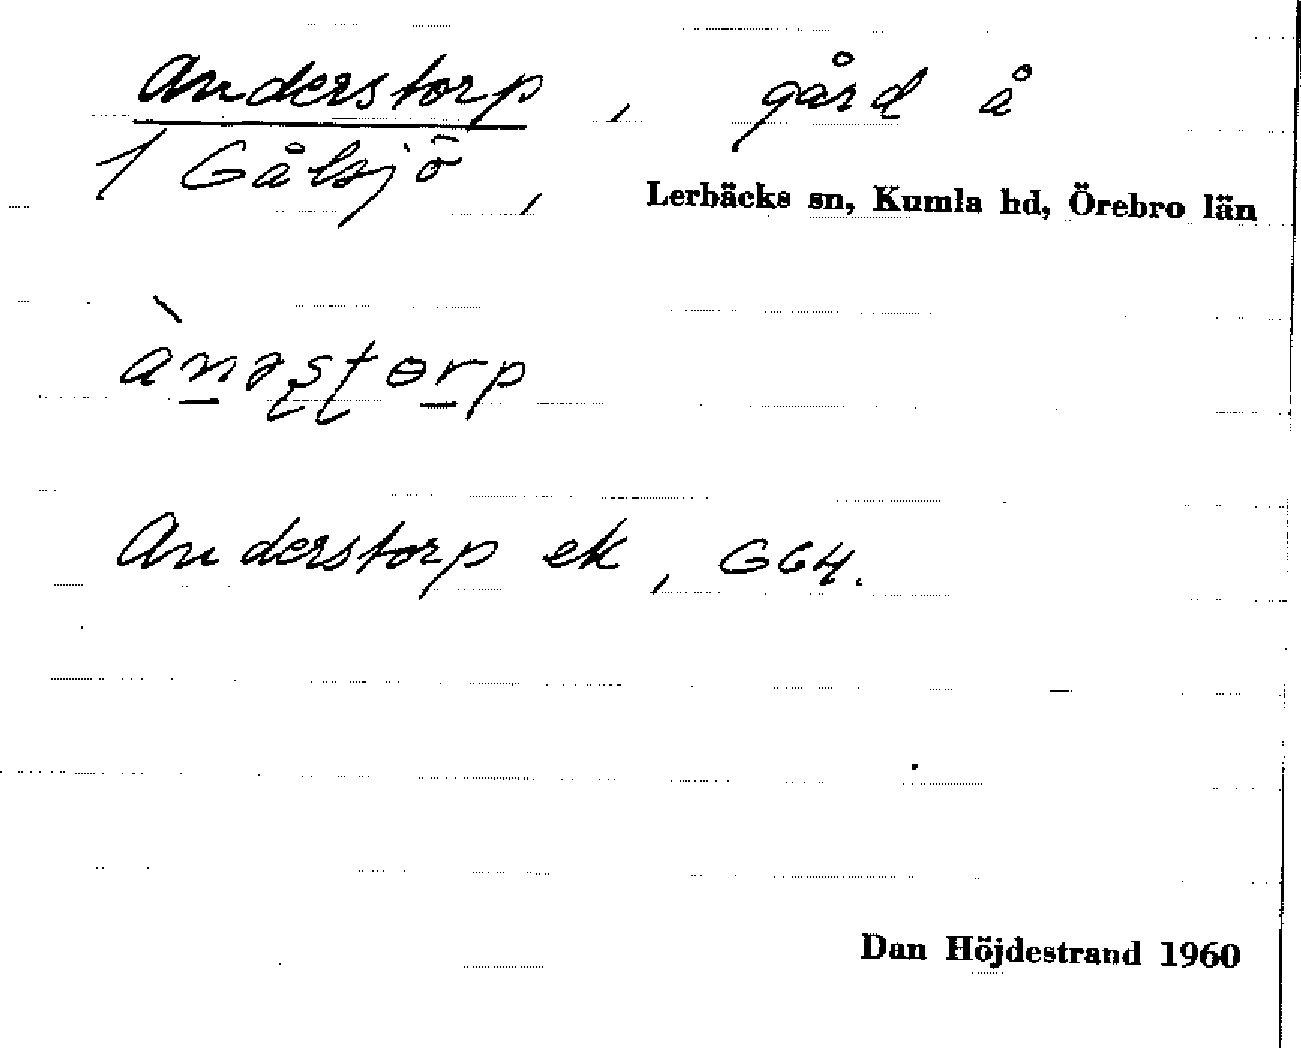 Anderstorp, gård å
1 Gålsjö, Lerbäcks sn, Kumla hd, Örebro län
Anderstorp ek, GGH.
Dan Höjdestrand 1960